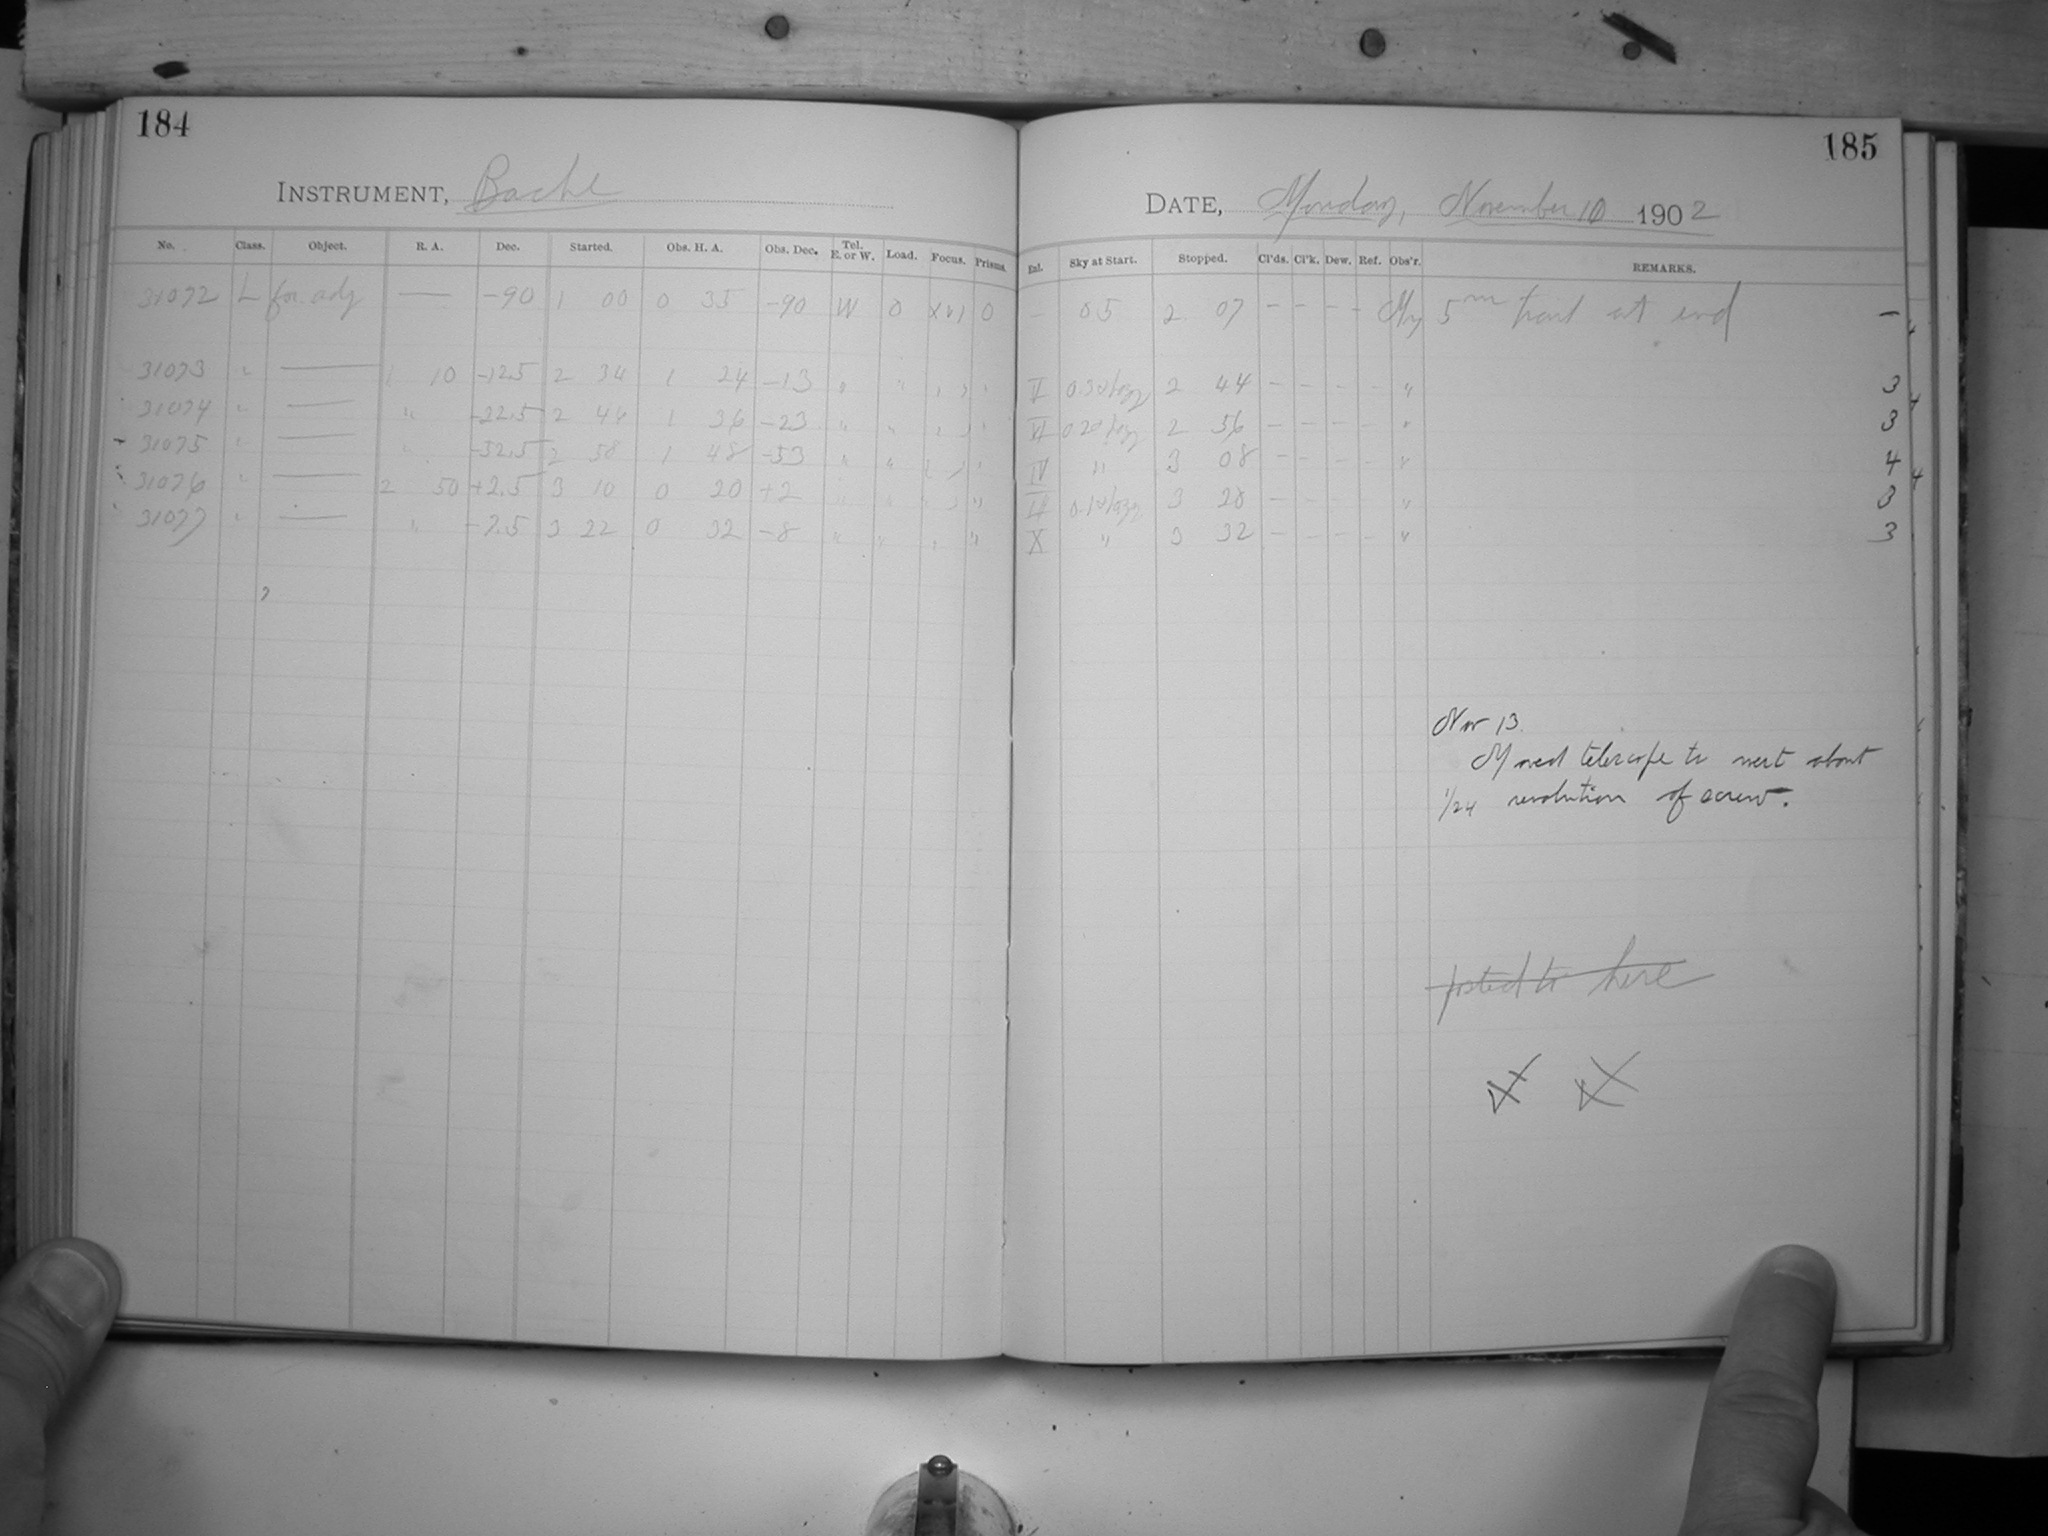 184
INSTRUMENT, Bache
No. Class. Object. R. A. Dec. Started. Obs. H. A. Obs. Dec. Tel. E. or W. Load. Focus. Prisms.
31072 L for adj — -90 1 00 0 35 -90 W 0 XVI 0
31073 " — 1 10 -12.5 2 34 1 24 -13 " " " "
31074 " — " -22.5 2 46 1 36 -23 " " " "
31075 " — " -52.5 2 58 1 48 -53 " " " "
31076 " — 2 50 +2.5 3 10 0 20 +2 " " " "
31077 " — " -7.5 3 22 0 32 -8 " " " "
185
DATE, Monday, November 10 1902
Sky at Start. Stopped. Cl'ds. Cl'k. Dew. Ref. Obs'r. REMARKS.
– 0.5 2 07 – – – – 5m at end –
2 44 – – – – " 3
2 56 – – – – " 3
IV " 3 08 – – – – " 4
3 20 – – – – " 3
X " 3 32 – – – – " 3
Nov 13.
Moved telescope to west about
1/24 revolution of screw.
posted to here